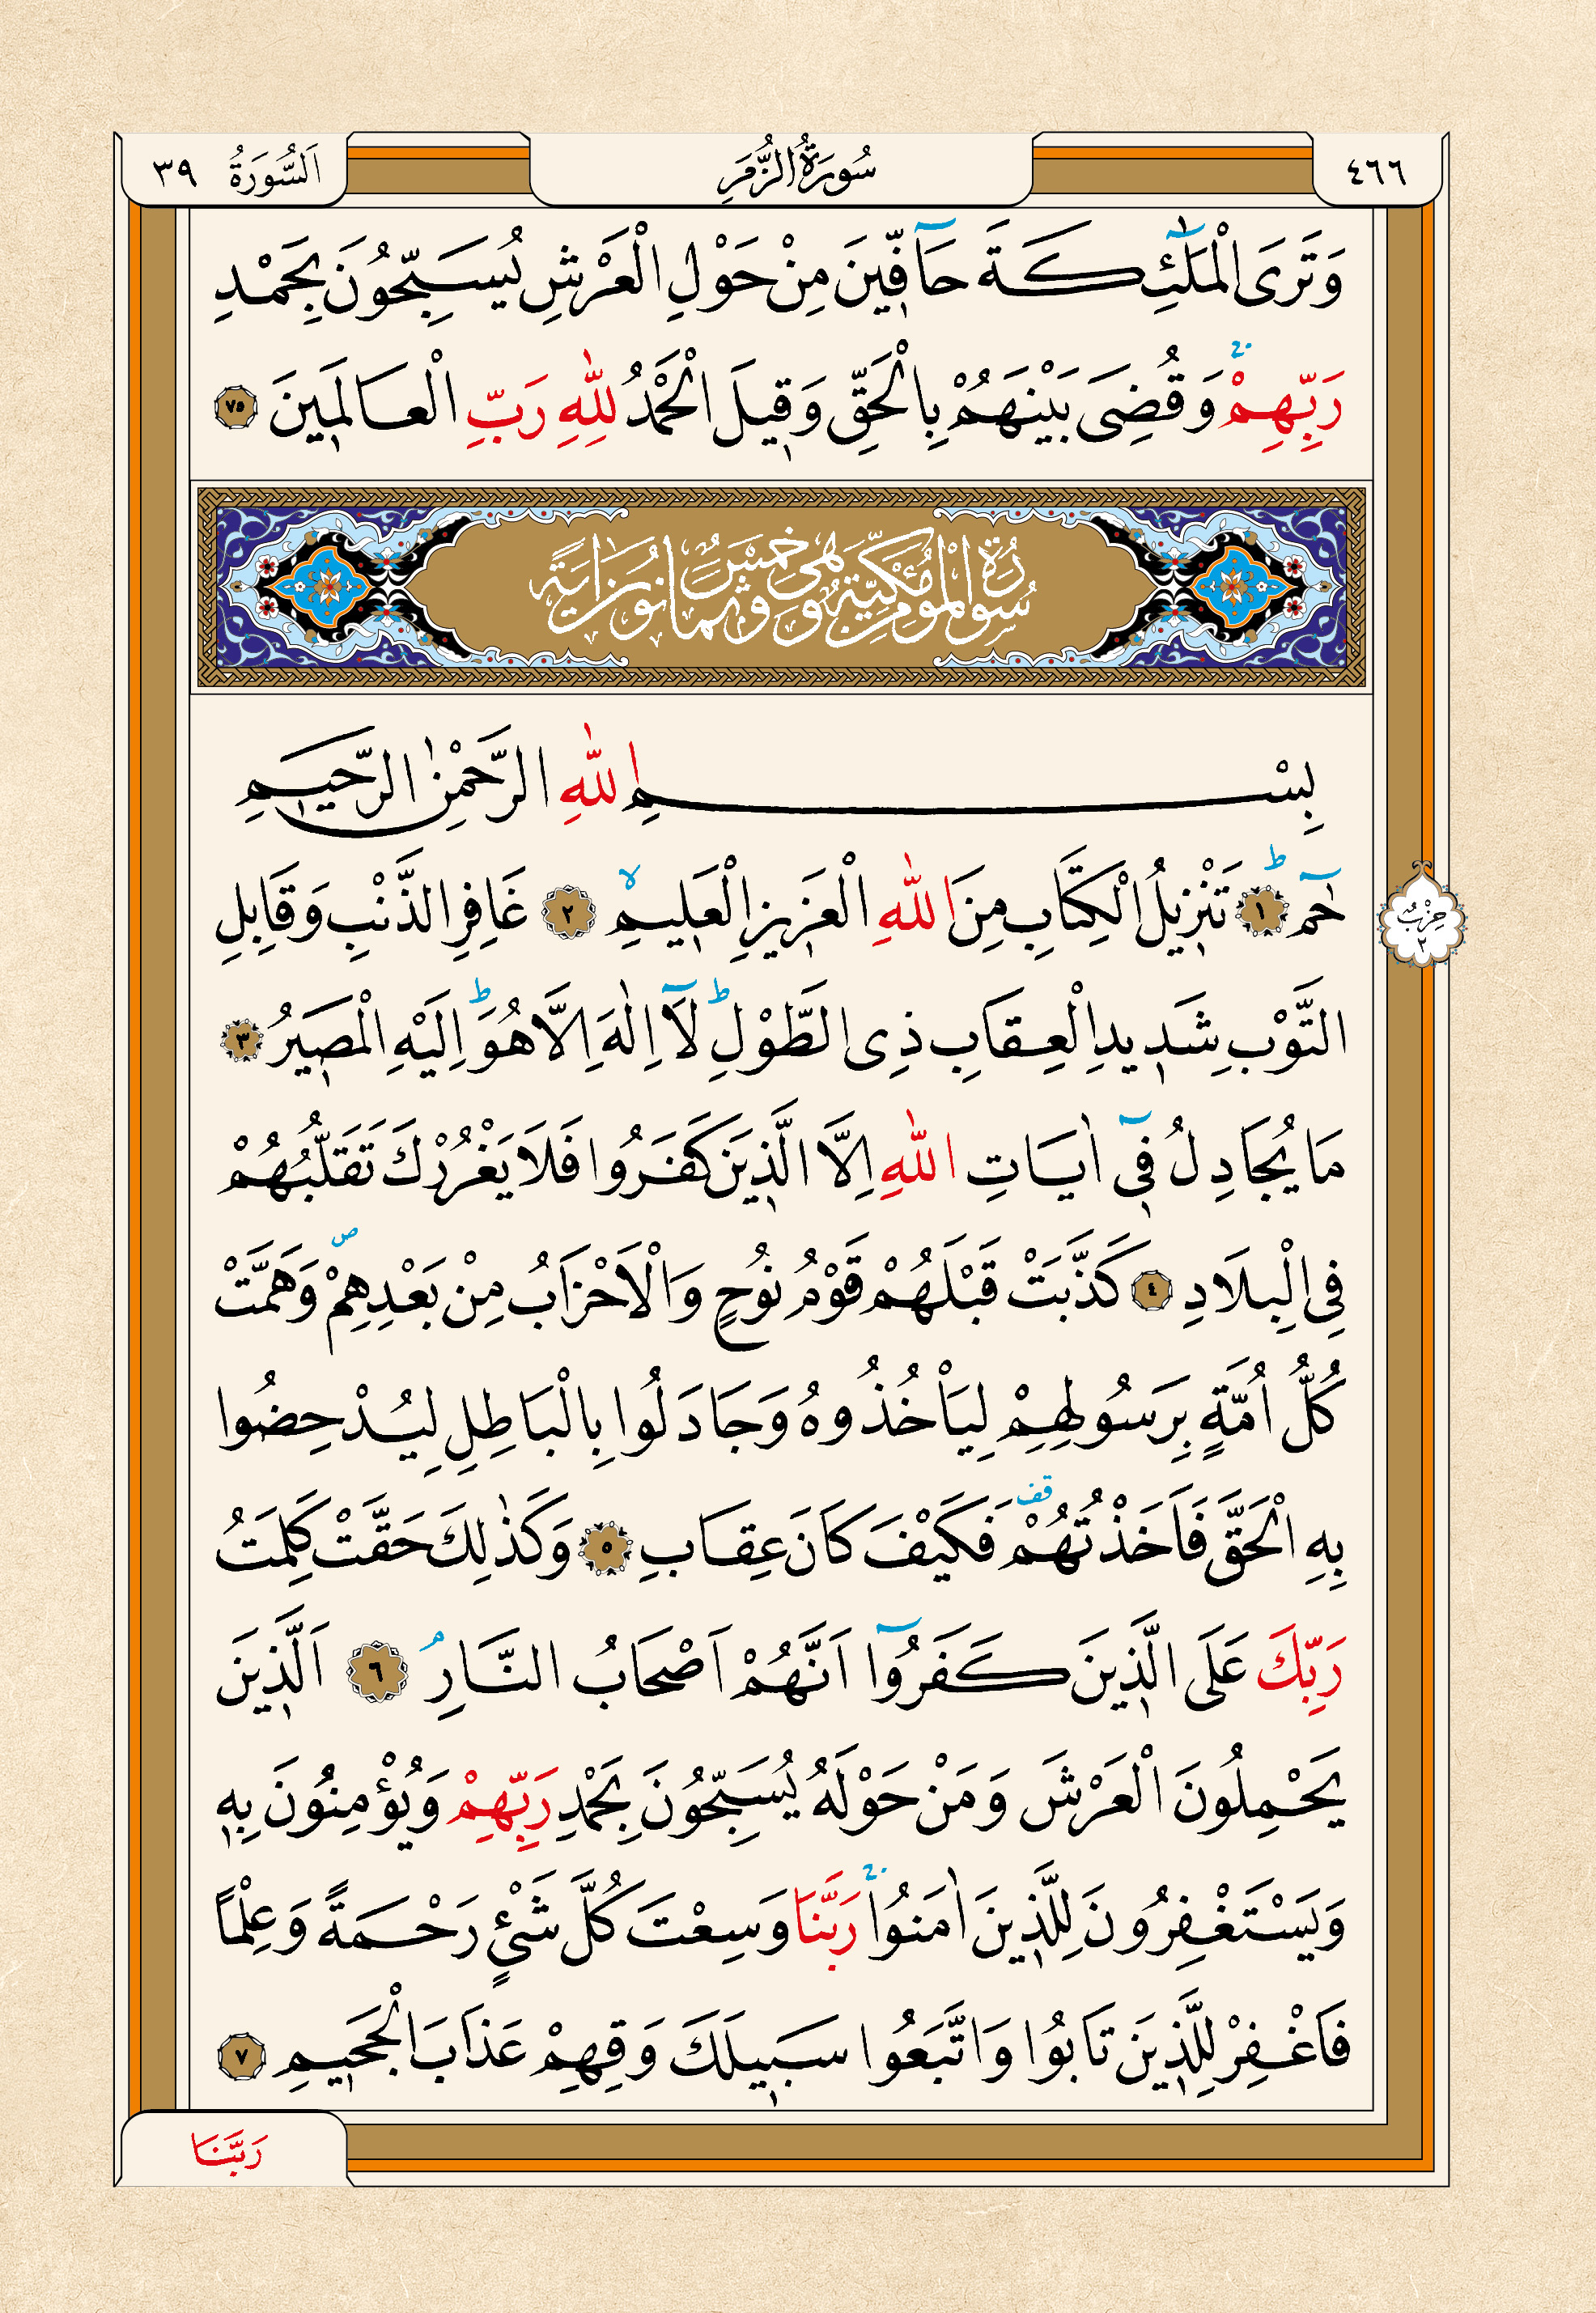 ٤٦٦
سُورَةُ الزُّمَرِ
اَلسُّورَةُ ٣٩
وَتَرَى الْمَلٰٓئِكَةَ حَٓافّ۪ينَ مِنْ حَوْلِ الْعَرْشِ يُسَبِّحُونَ بِحَمْدِ
رَبِّهِمْۚ وَقُضِيَ بَيْنَهُمْ بِالْحَقِّ وَق۪يلَ الْحَمْدُ لِلّٰهِ رَبِّ الْعَالَم۪ينَ ﴿٧٥﴾
سُورَةُ الْمُؤْمِنِ مَكِّيَّةٌ وَهِيَ خَمْسٌ وَثَمَانُونَ اٰيَةً
بِسْمِ اللّٰهِ الرَّحْمٰنِ الرَّح۪يمِ
حٰمٓۜ ﴿١﴾ تَنْز۪يلُ الْكِتَابِ مِنَ اللّٰهِ الْعَز۪يزِ الْعَل۪يمِۙ ﴿٢﴾ غَافِرِ الذَّنْبِ وَقَابِلِ
حِزْبٌ ٢
التَّوْبِ شَد۪يدِ الْعِقَابِ ذِي الطَّوْلِۜ لَٓا اِلٰهَ اِلَّا هُوَۜ اِلَيْهِ الْمَص۪يرُ ﴿٣﴾
مَا يُجَادِلُ ف۪ٓي اٰيَاتِ اللّٰهِ اِلَّا الَّذ۪ينَ كَفَرُوا فَلَا يَغْرُرْكَ تَقَلُّبُهُمْ
فِي الْبِلَادِ ﴿٤﴾ كَذَّبَتْ قَبْلَهُمْ قَوْمُ نُوحٍ وَالْاَحْزَابُ مِنْ بَعْدِهِمْۖ وَهَمَّتْ
كُلُّ اُمَّةٍ بِرَسُولِهِمْ لِيَأْخُذُوهُ وَجَادَلُوا بِالْبَاطِلِ لِيُدْحِضُوا
بِهِ الْحَقَّ فَاَخَذْتُهُمْ۠ فَكَيْفَ كَانَ عِقَابِ ﴿٥﴾ وَكَذٰلِكَ حَقَّتْ كَلِمَتُ
رَبِّكَ عَلَى الَّذ۪ينَ كَفَرُٓوا اَنَّهُمْ اَصْحَابُ النَّارِۢ ﴿٦﴾ اَلَّذ۪ينَ
يَحْمِلُونَ الْعَرْشَ وَمَنْ حَوْلَهُ يُسَبِّحُونَ بِحَمْدِ رَبِّهِمْ وَيُؤْمِنُونَ بِه۪
وَيَسْتَغْفِرُونَ لِلَّذ۪ينَ اٰمَنُواۚ رَبَّنَا وَسِعْتَ كُلَّ شَيْءٍ رَحْمَةً وَعِلْماً
فَاغْفِرْ لِلَّذ۪ينَ تَابُوا وَاتَّبَعُوا سَب۪يلَكَ وَقِهِمْ عَذَابَ الْجَح۪يمِ ﴿٧﴾
رَبَّنَا